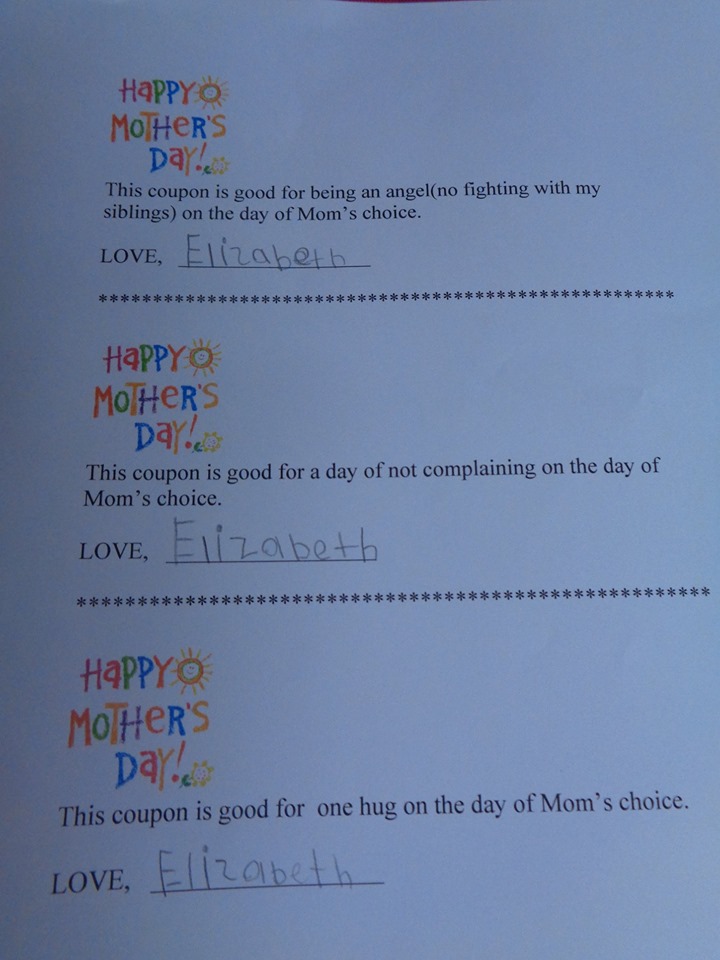 HaPPY
MOTHeR'S
Day!
This coupon is good for being an angel(no fighting with my
siblings) on the day of Mom's choice.
LOVE, Elizabeth
*****************************************************
HaPPY
MOTHeR'S
Day!
This coupon is good for a day of not complaining on the day of
Mom's choice.
LOVE, Elizabeth
*****************************************************
HaPPY
MOTHeR'S
Day!
This coupon is good for one hug on the day of Mom's choice.
LOVE, Elizabeth